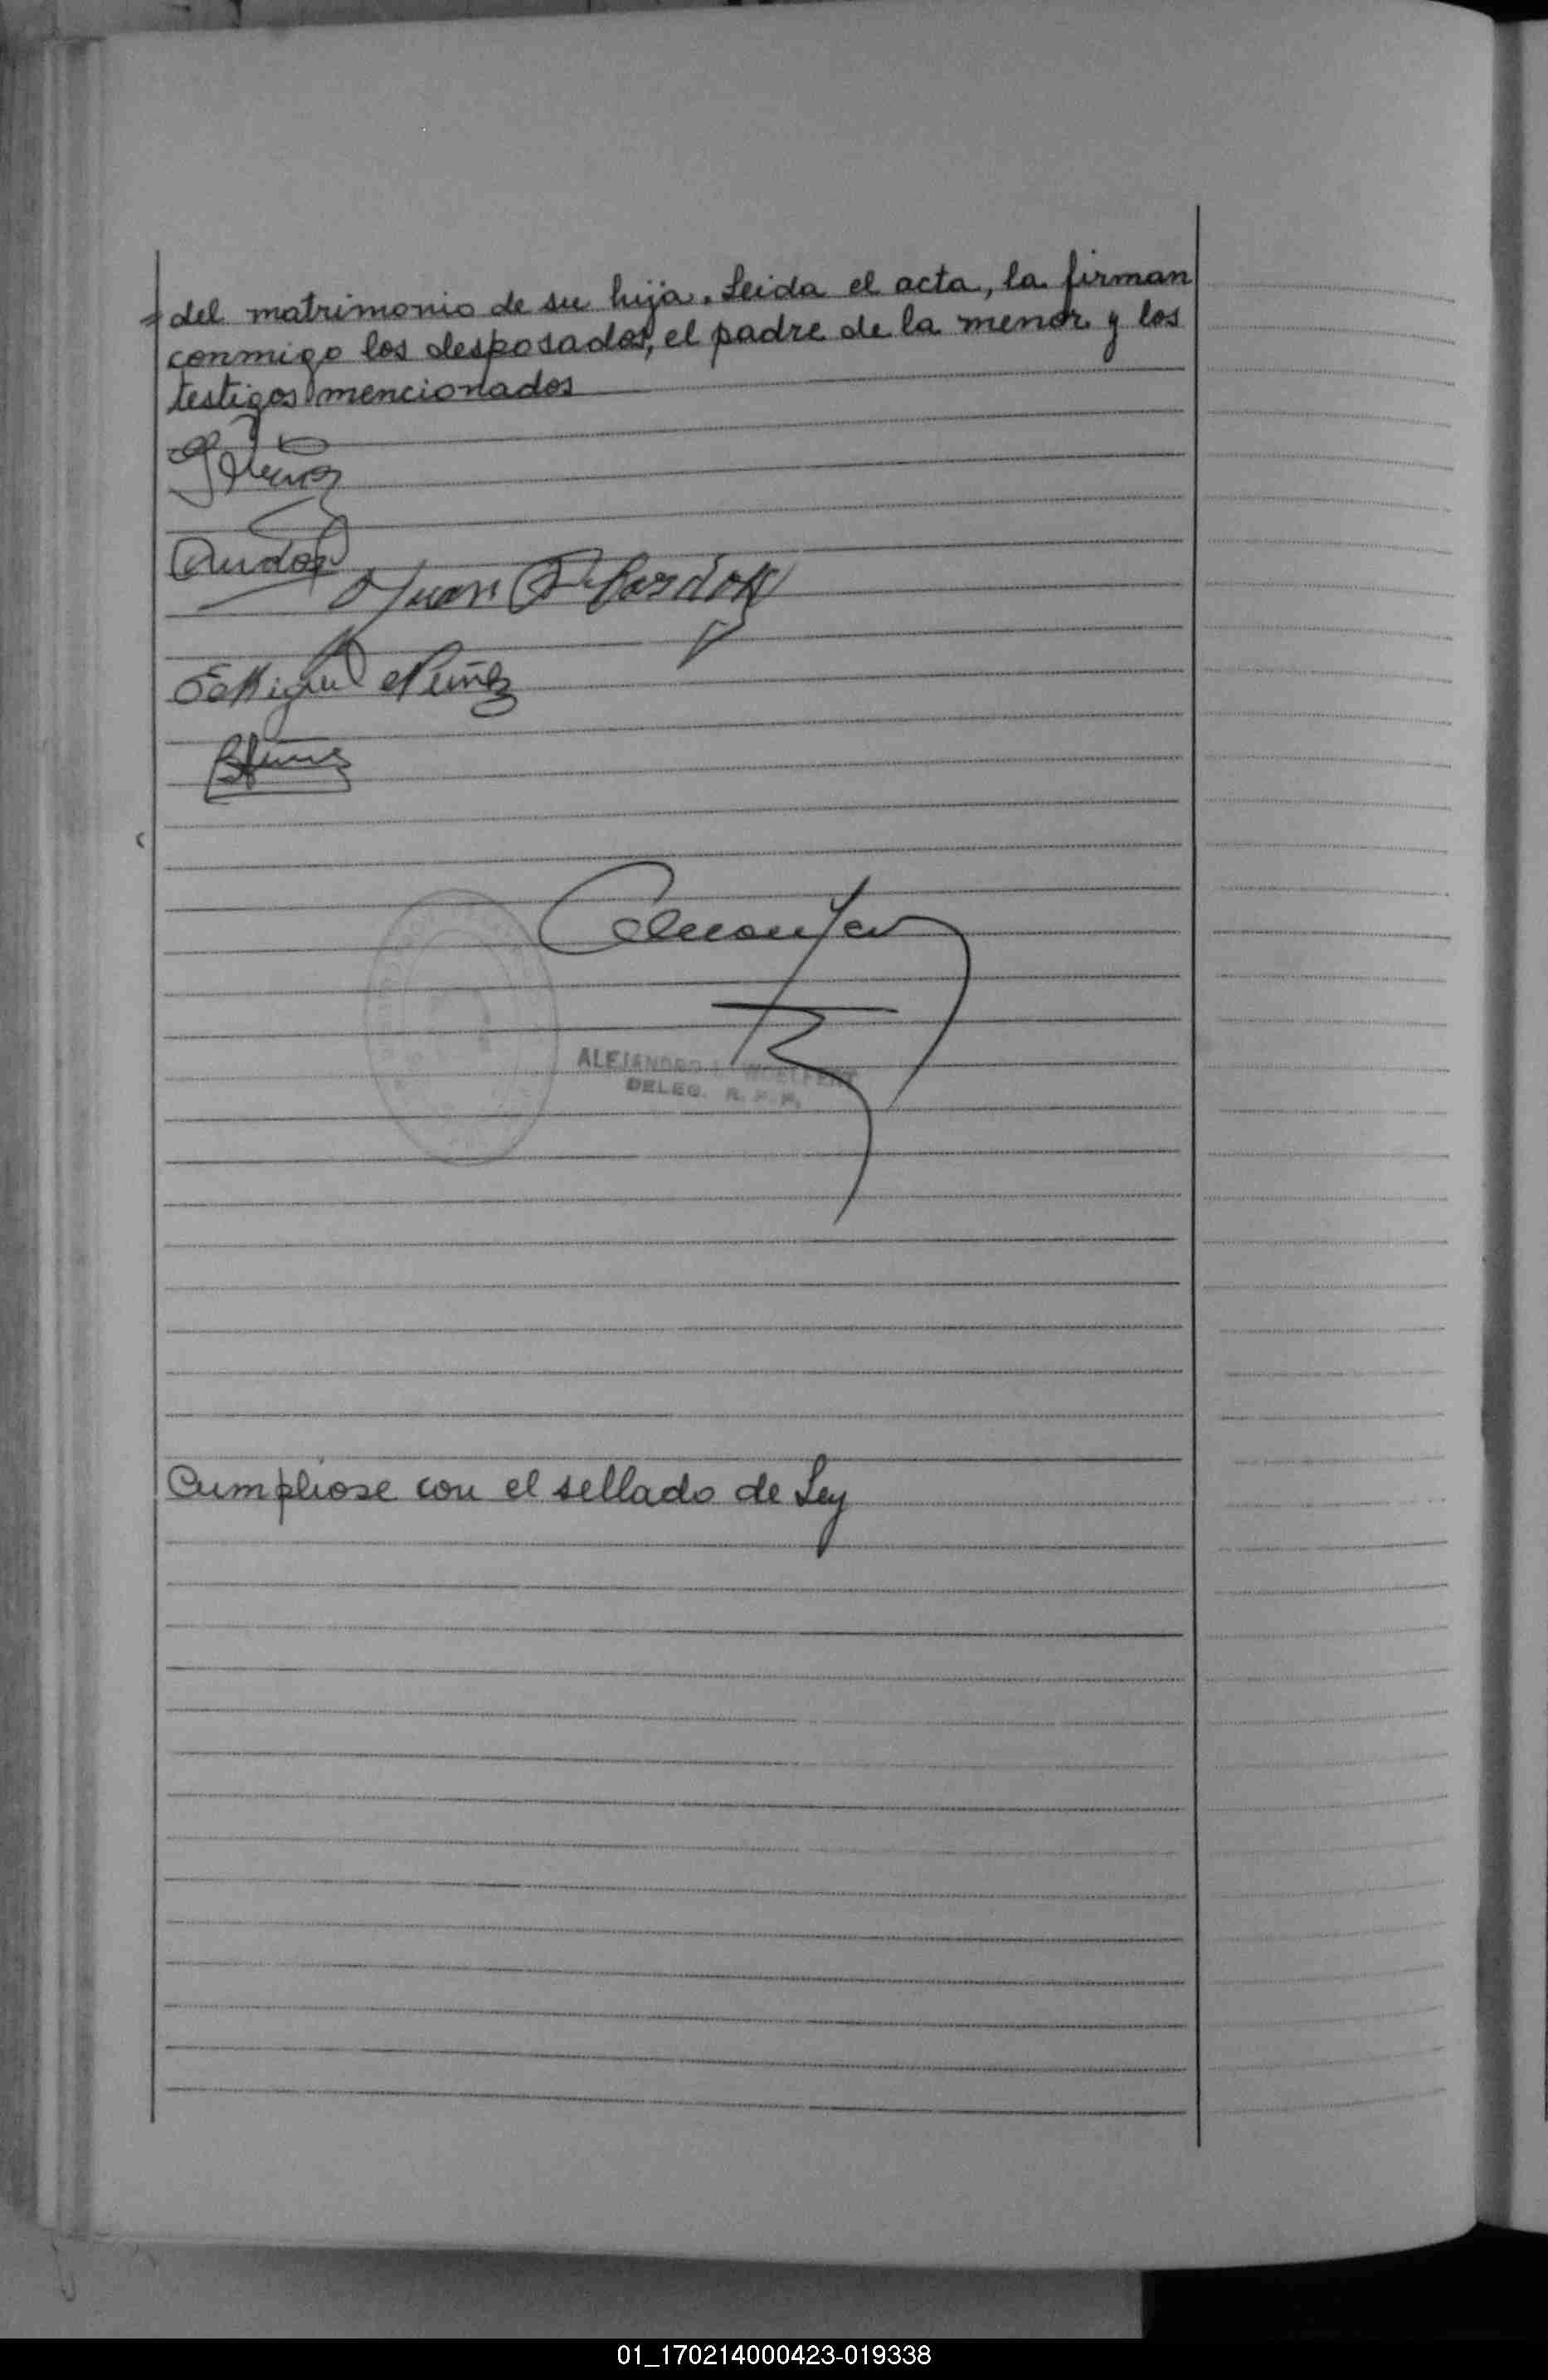 del matrimonio de su hija. Leida el acta, la firman
conmigo los desposados, el padre de la menor y los
testigos mencionados
Juan
Miguel Nuñez
ALEJANDRO WOELFERT
DELEG. R. P. P.
Cumpliose con el sellado de Ley
01_170214000423-019338